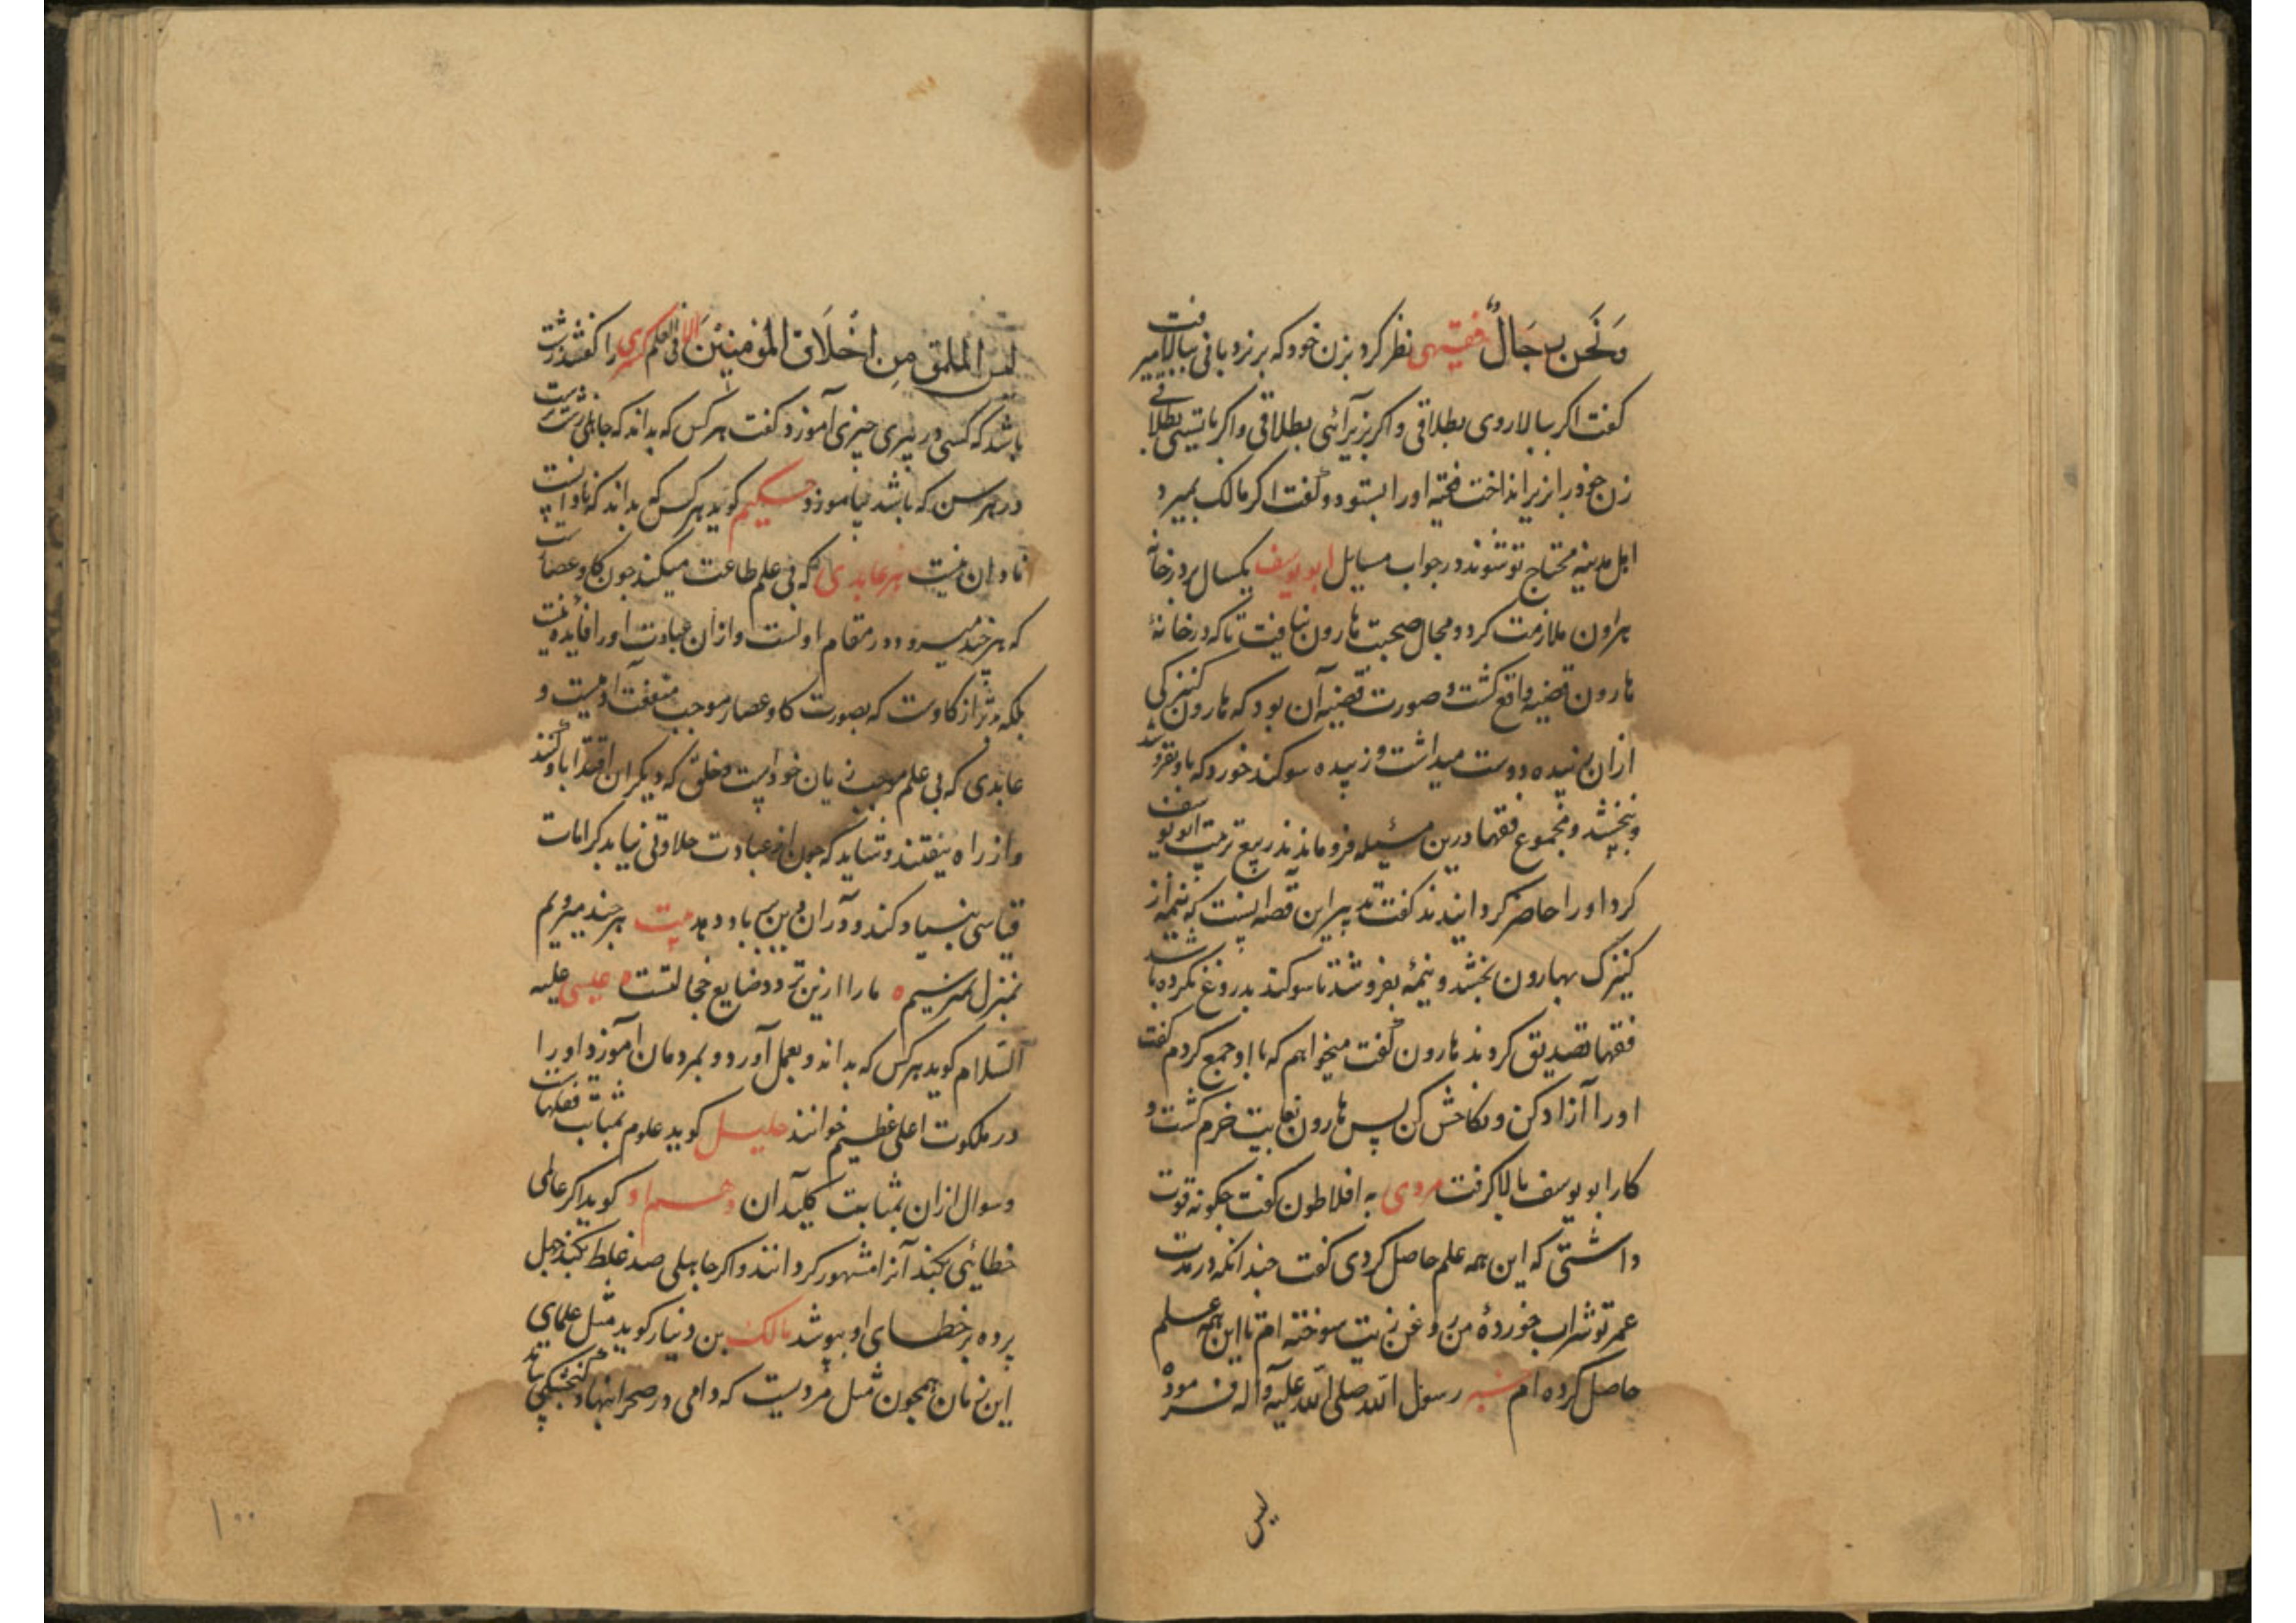 وَنَحن رِجَالٌ فقیهی نظر کرد بزن خود که بر نردبانی ببالا میرفت
کفت اکر ببالا روی بطلاقی و اکر بزیر آئی بطلاقی و اکر بایستی بطلاقی
زن خود را از زیر انداخت فقیه او را بستود و کفت اکر مالک بمیرد
اهل مدینه محتاج تو شوند در جواب مسایل ابو یوسف یکسال بر در خانه
هارون ملازمت کرد و مجال صحبت هارون نیافت تا که در خانهٔ
هارون قضیه واقع کشت و صورت قضیه آن بود که هارون کنیزکی
از ان زبیده دوست میداشت و زبیده سوکند خورد که باو نفروشد
و نبخشد و مجموع فقها درین مسیٔله فروماندند ربیع تربیت ابو یوسف
کرد او را حاضر کردانیدند کفت تدبیر این قصه اینست که نیمهٔ از
کنیزک بهارون بخشد و نیمهٔ بفروشد تا سوکند بدروغ نکرده باشد
فقها تصدیق کردند هارون کفت میخواهم که با او جمع کردم کفت
او را آزاد کن و نکاحش کن پس هارون بغایت خرم کشت و
کار ابو یوسف بالا کرفت مردی به افلاطون کفت چکونه قوت
داشتی که این همه علم حاصل کردی کفت چندانکه در مدت
عمر تو شراب خوردهٔ من روغن زیت سوخته ام تا این همه علم
حاصل کرده ام رسول الله صلی الله علیه و آله فرمود
لیس
لیس الملق مِن اَخْلَاق المؤمنیْنَ اِلّا فی العلم کسری را کفتند زشت
باشد که کسی در پیری چیزی آموزد کفت هر کس که بداند که جاهلی زشتست
در هر سن که باشد بیاموزد حکیم کوید هر کس که بداند که نادانست
نادان نیست هر عابدی که بی علم طاعت میکند چون کاو عصارست
که هر چند میرود در مقام اولست و از ان عبادت او را فایده نیست
بلکه بدتر از کاوست که بصورت کاو عصار موجب منفعت آدمیست و
عابدی که بی علم موجب زیان خود است و خلقی که دیکران اقتدا باو کنند
و از راه بیفتند و شاید که چون از عبادت حلاوتی نیابد بکرامات
قیاسی بنیاد کند و در آن دین بباد دهد بیت هر چند میرویم
بمنزل نمیرسیم ما را ازین تردد ضایع خجالتست عیسی علیه
السّلام کوید هر کس که بداند و بعمل آورد و بمردمان آموزد او را
در ملکوت اعلی عظیم خوانند خلیل کوید علوم بمثابت قفلهاست
و سوال از ان بمثابت کلید آن و هم او کوید اکر عالمی
خطایٔی بکند آنرا مشهور کردانند و اکر جاهلی صد غلط بکند جهل
پرده بر خطای او بپوشد مالک بن دینار کوید مثل علمای
این زمان همچون مثل مردیست که دامی در صحرا بنهاد کنجشکی بیامد
۱۰۰